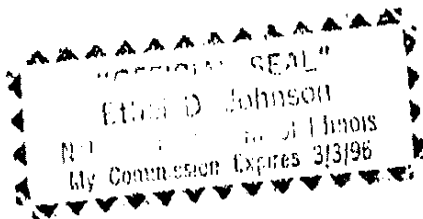 "OFFICIAL SEAL"
Ethel D. Johnson
of Illinois
My Commission Expires 3/3/96